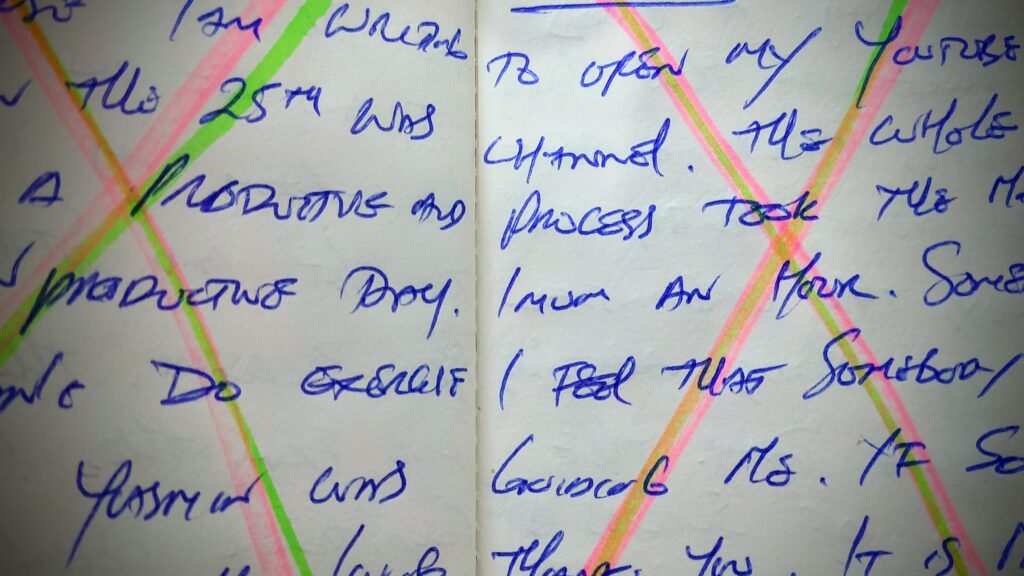 I AM WRITING
THE 25TH WAS
A PRODUCTIVE AND
PRODUCTIVE DAY.
DO EXERCISE
YASMIN WAS
TO OPEN MY YOUTUBE
CHANNEL. THE WHOLE
PROCESS TOOK THE
IMUM AN HOUR. SOME
I FEEL THAT SOMEBODY
GUIDING ME. IF SO
THANK YOU. IT IS